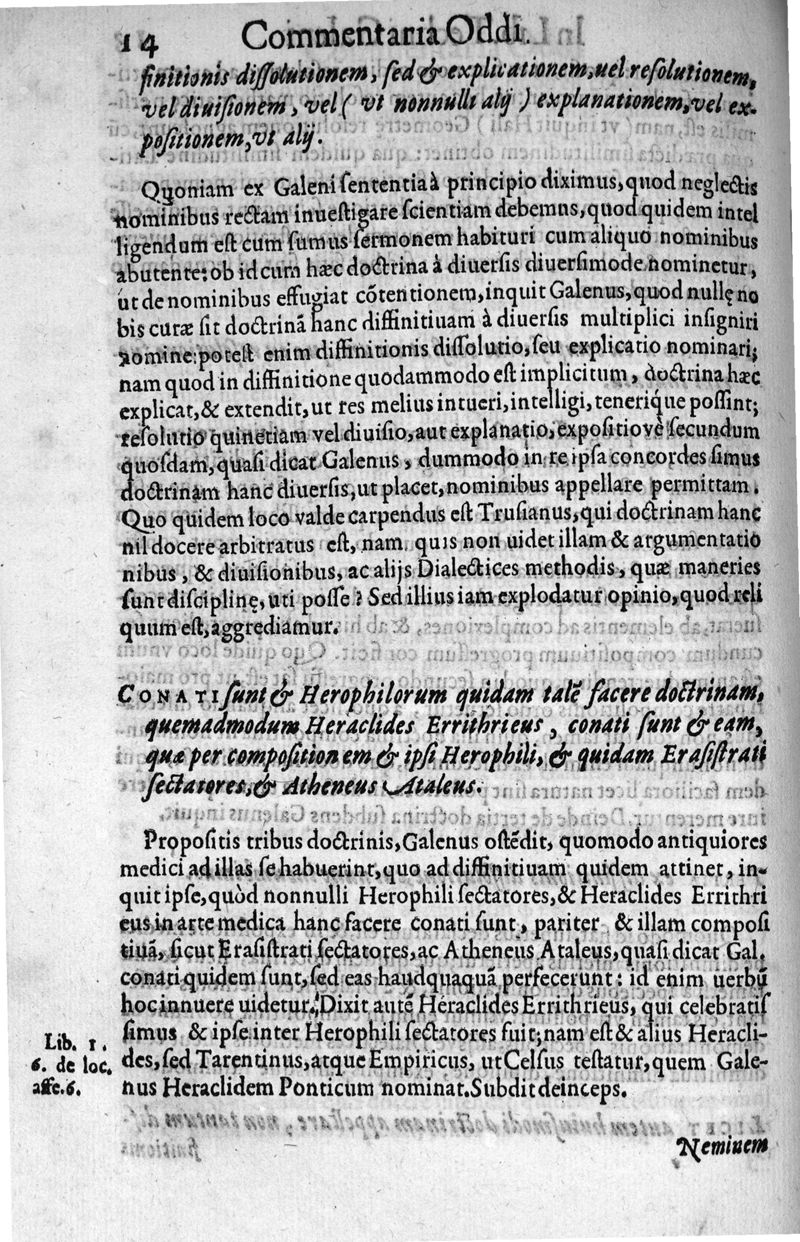 14 Commentaria Oddi.
finitionis dissolutionem, sed & explicationem, uel resolutionem,
vel diuisionem, vel ( vt nonnulli alij ) explanationem, vel ex-
positionem, vt alij.
Quoniam ex Galeni sententia à principio diximus, quod neglectis
nominibus rectam inuestigare scientiam debemus, quod quidem intel
ligendum est cum sumus sermonem habituri cum aliquo nominibus
abutente: ob id cum hæc doctrina à diuersis diuersimode nominetur,
ut de nominibus effugiat cõtentionem, inquit Galenus, quod nullę no
bis curæ sit doctrinã hanc diffinitiuam à diuersis multiplici insigniri
nomine: potest enim diffinitionis dissolutio, seu explicatio nominari;
nam quod in diffinitione quodammodo est implicitum, doctrina hæc
explicat, & extendit, ut res melius intueri, intelligi, tenerique possint;
resolutio quinetiam vel diuisio, aut explanatio, expositiove secundum
quosdam, quasi dicat Galenus, dummodo in re ipsa concordes simus
doctrinam hanc diuersis, ut placet, nominibus appellare permittam.
Quo quidem loco valde carpendus est Trusianus, qui doctrinam hanc
nil docere arbitratus est, nam quis non uidet illam & argumentatio
nibus, & diuisionibus, ac alijs Dialectices methodis, quæ maneries
sunt disciplinę, uti posse? Sed illius iam explodatur opinio, quod reli
quum est, aggrediamur.
CONATI sunt & Herophilorum quidam talẽ facere doctrinam,
quemadmodum Heraclides Errithrieus, conati sunt & eam,
quæ per composition em & ipsi Herophili, & quidam Erasistrati
sectatores, & Atheneus Ataleus.
Propositis tribus doctrinis, Galenus ostẽdit, quomodo antiquiores
medici ad illas se habuerint, quo ad diffinitiuam quidem attinet, in-
quit ipse, quòd nonnulli Herophili sectatores, & Heraclides Errithri
eus in arte medica hanc facere conati sunt, pariter & illam composi
tiuã, sicut Erasistrati sectatores, ac Atheneus Ataleus, quasi dicat Gal.
conati quidem sunt, sed eas haudquaquã perfecerunt: id enim uerbũ
hoc innuere uidetur. Dixit autẽ Heraclides Errithrieus, qui celebratis
simus & ipse inter Herophili sectatores fuit; nam est & alius Heracli-
des, sed Tarentinus, atque Empiricus, ut Celsus testatur, quem Gale-
nus Heraclidem Ponticum nominat. Subdit deinceps.
Lib. 1.
6. de loc.
affe. 6.
Neminem